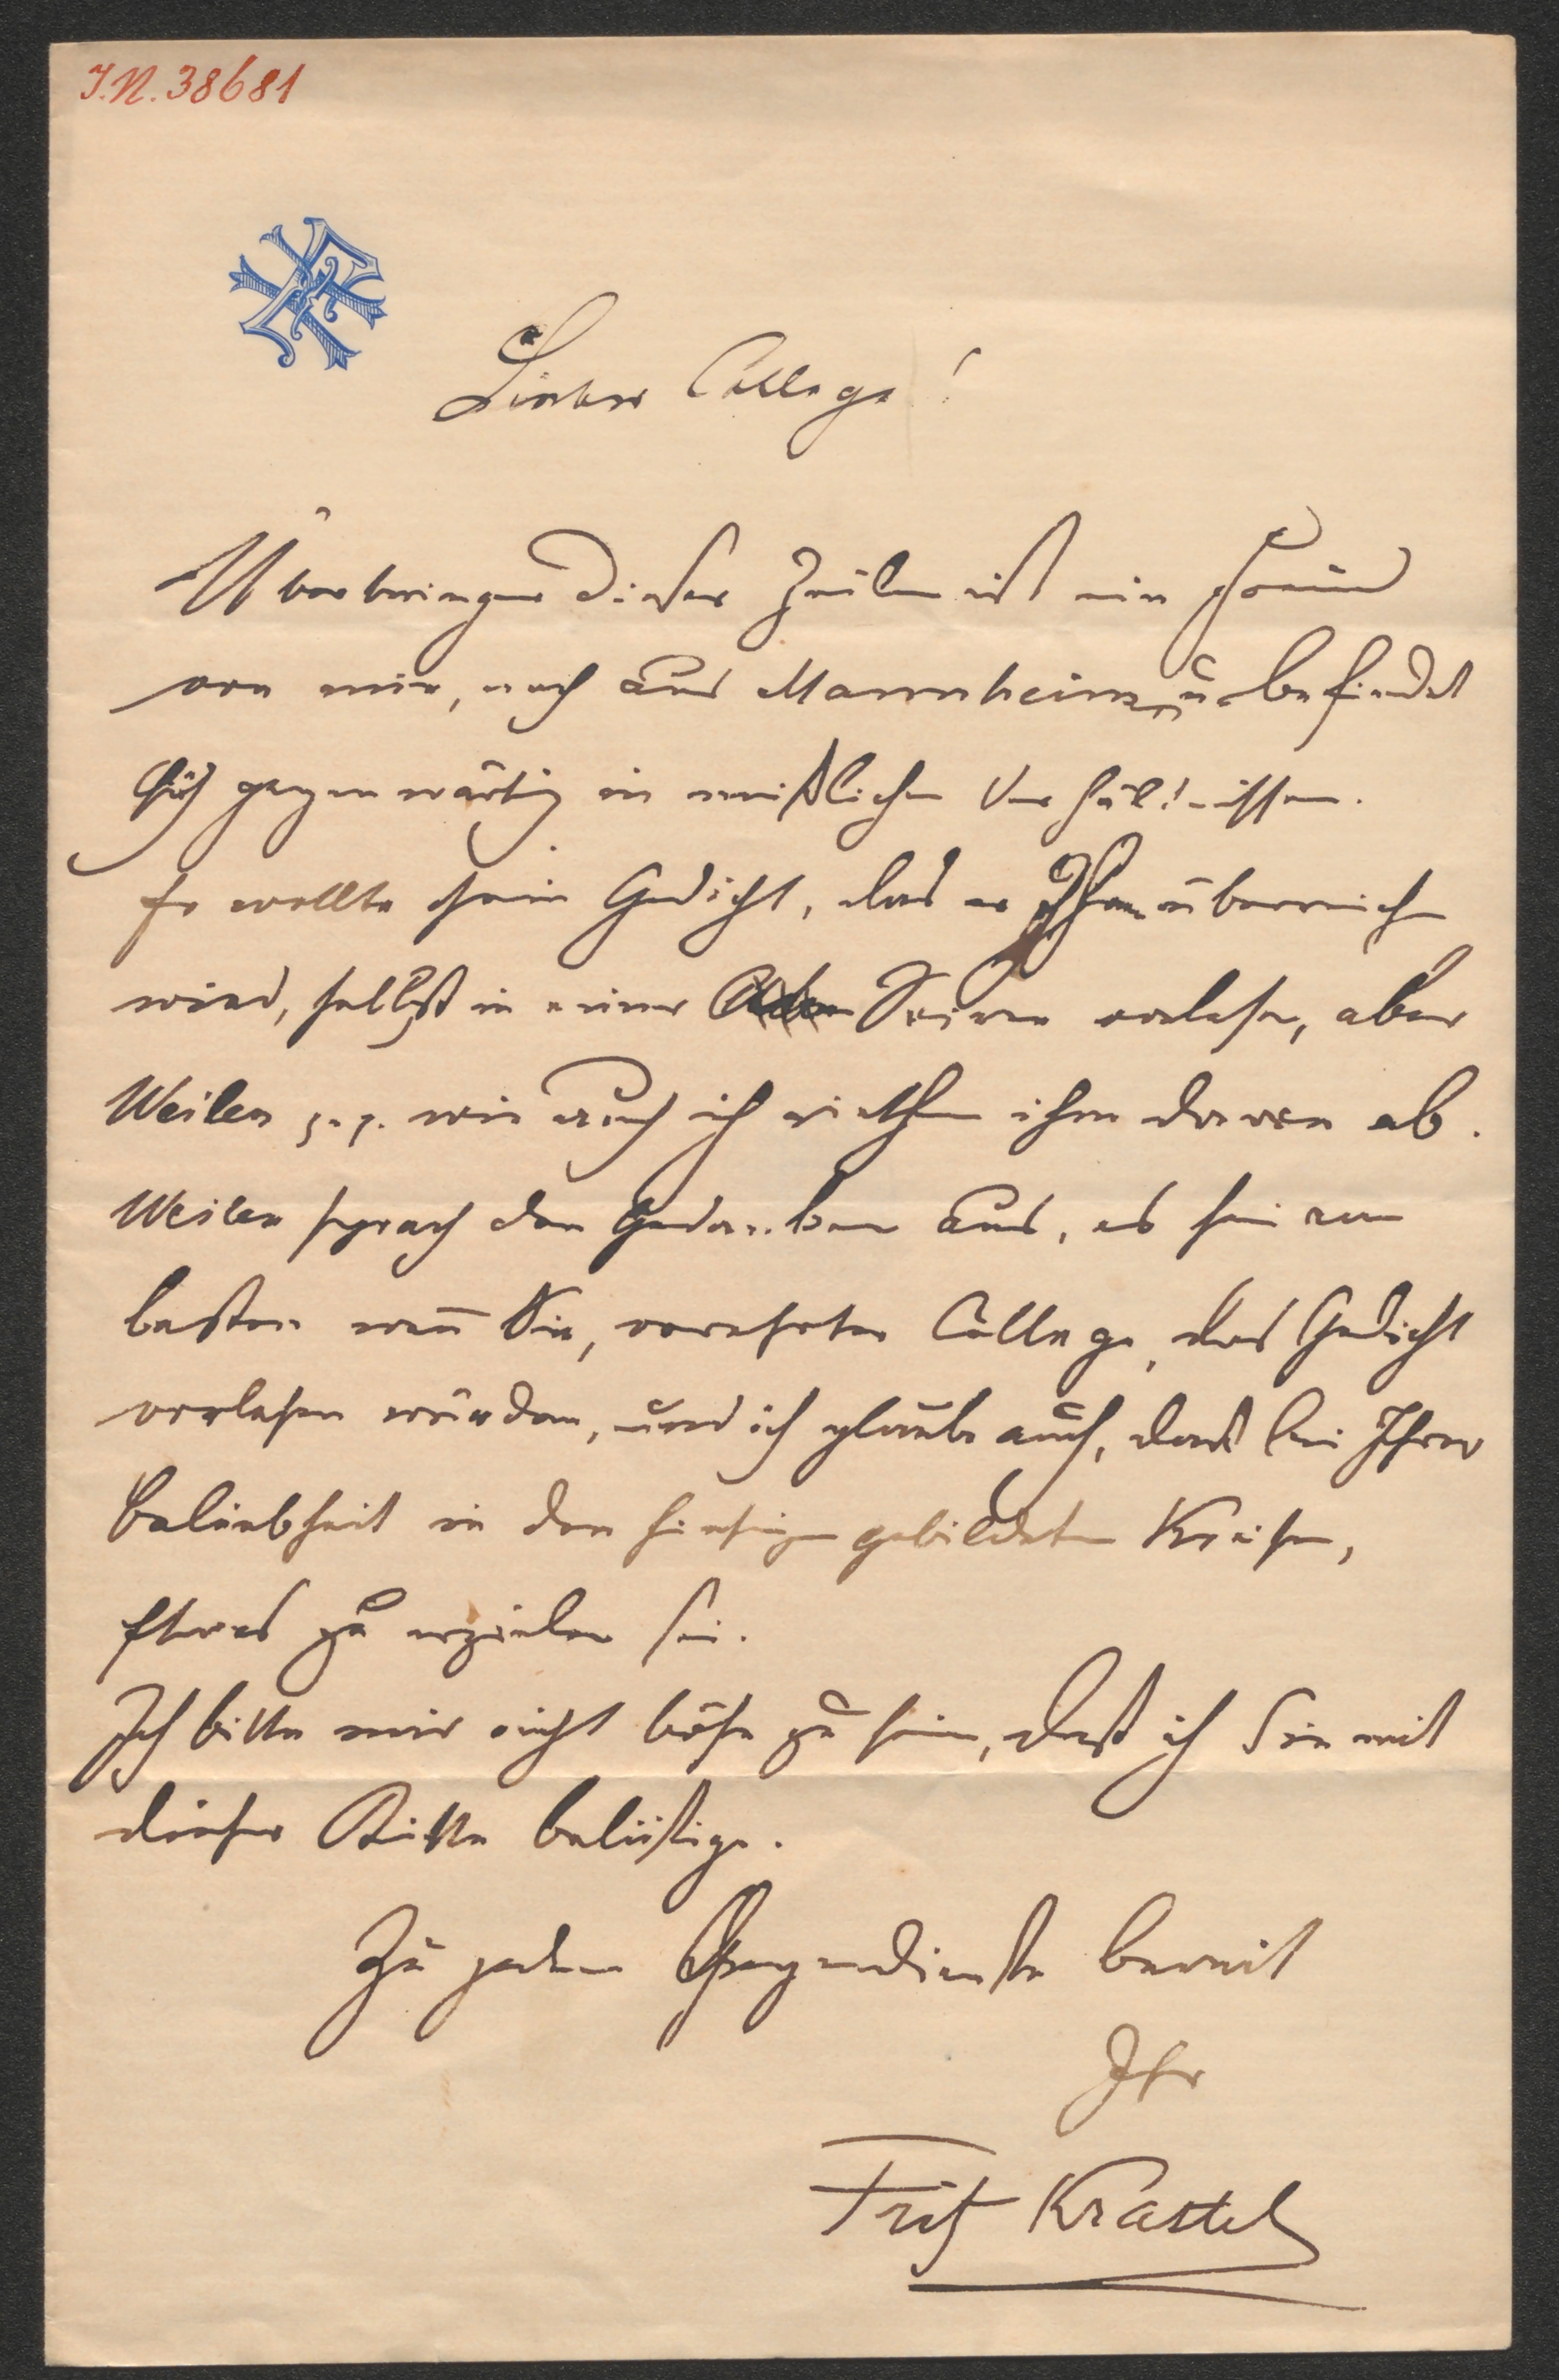 I.N. 38681
Lieber College!
Überbringer dieser Zeilen ist ein Freund
von mir, auch aus Mannheim, u befindet
sich gegenwärtig in mißlichen Verhältnissen.
Er wollte sein Gedicht, das er Ihnen überreichen
wird, selbst in einer Soiree vorlesen, aber
Weilen wie auch ich riethen ihm davon ab.
Weilen sprach den Gedanken aus, es sei am
besten wen̅ Sie, verehrter College, das Gedicht
vorlesen würden, und ich glaube auch, dass bei Ihrer
Beliebheit in den hiesigen gebildeten Kreisen,
Etwas zu erzielen sei.
Ich bitte mir nicht böse zu sein, daß ich Sie mit
dieser Bitte belästige.
Zu jedem Gegendienste bereit
Ihr
Fritz Krastel